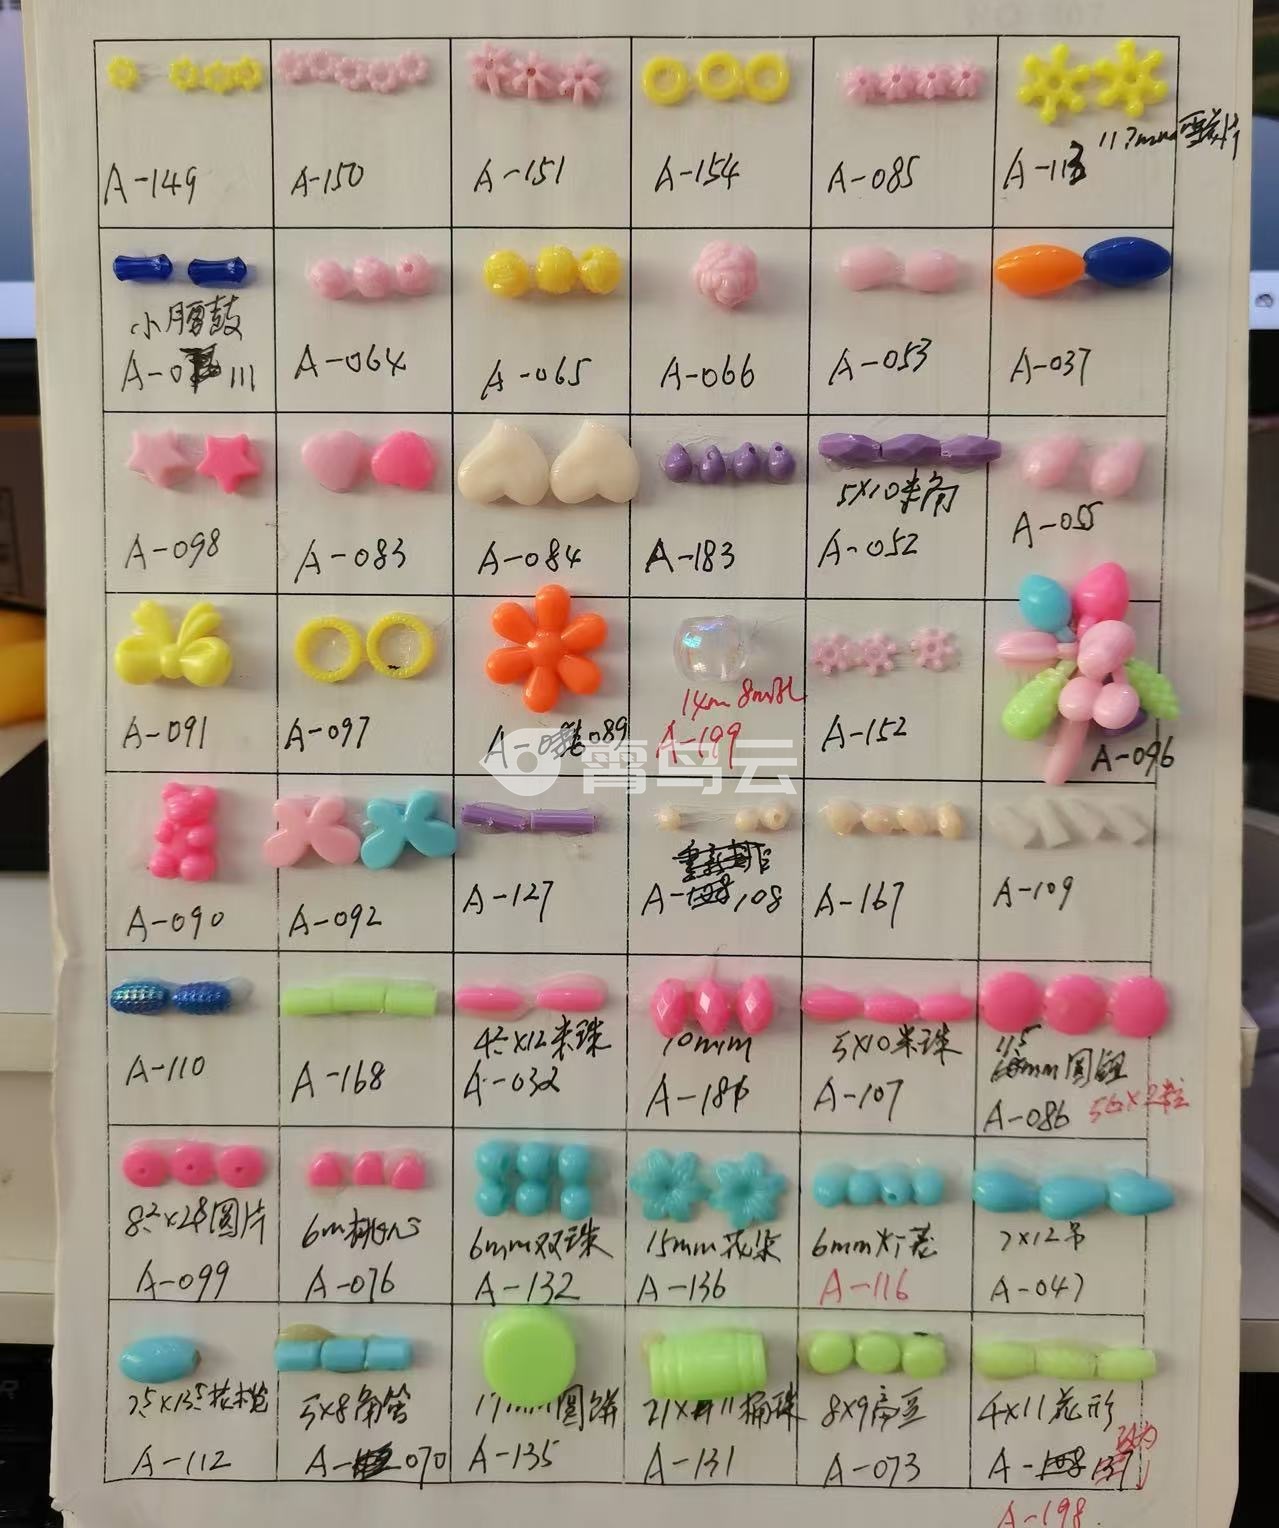 A-149
A-150
A-151
A-154
A-085
A-113
小腰鼓
A-0
111
A-064
A-065
A-066
A-053
A-037
A-098
A-083
A-084
A-183
5X10米角
A-052
A-055
A-091
A-097
A-0
089
14m 8m孔
A-199
A-152
A-096
霄鸟云
A-090
A-092
A-127
A-
108
A-167
A-109
A-110
A-168
米珠
A-032
10mm
A-186
5X10米珠
A-107
11.5
mm圆钮
A-086
圆片
A-099
6m桃心
A-076
6mm双珠
A-132
15mm花朵
A-136
6mm
A-116
7X12吊
A-047
A-112
5X8角管
A-
070
17mm圆饼
A-135
桶珠
A-131
8X9角豆
A-073
4X11花形
A-
137
改为
A-198